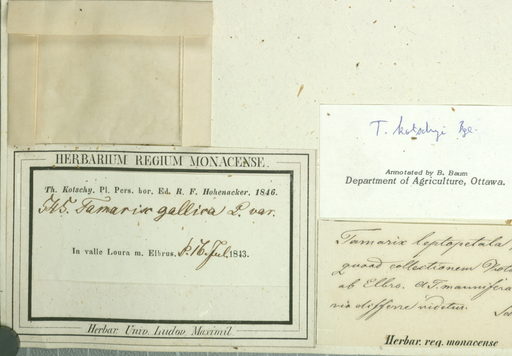 HERBARIUM REGIUM MONACENSE.
Th. Kotschy. Pl. Pers. bor. Ed. R. F. Hohenacker. 1846.
345. Tamarix gallica L. var.
In valle Loura m. Elbrus. d. 16. Jul. 1843.
Herbar. Univ. Ludov. Maximil.
T. kotschyi Bge.
Annotated by B. Baum
Department of Agriculture, Ottawa.
Tamarix leptopetala,
quoad collectionem
ab Elbr. a T. mannifera
vix differre videtur.
Herbar. reg. monacense